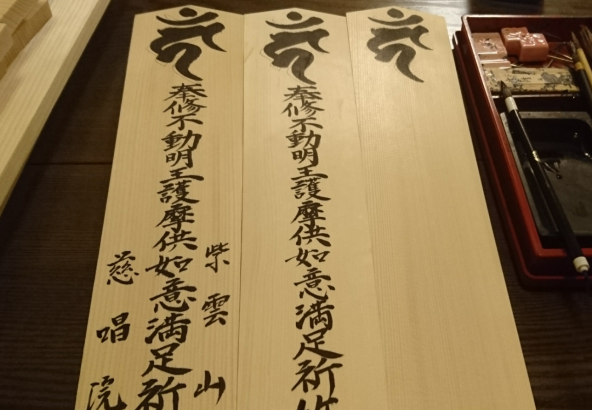 奉修不動明王護摩供如意満足祈
紫雲山
奉修不動明王護摩供如意満足祈
慈唱院